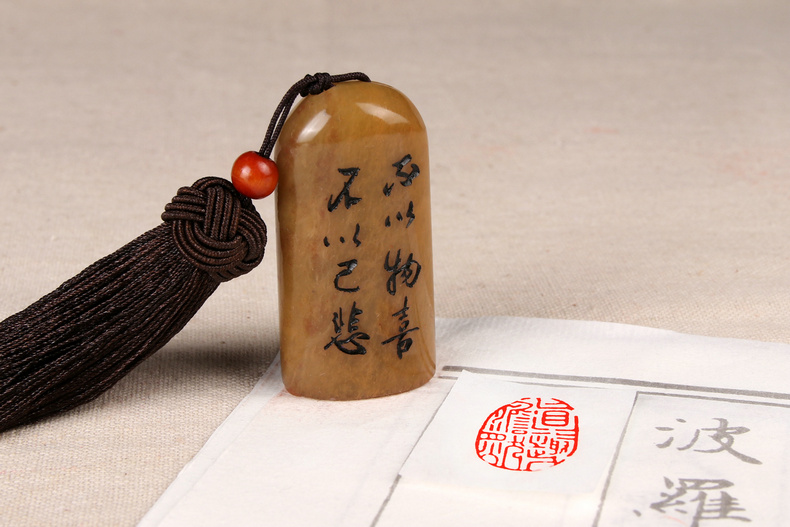 不以物喜
不以己悲
波羅